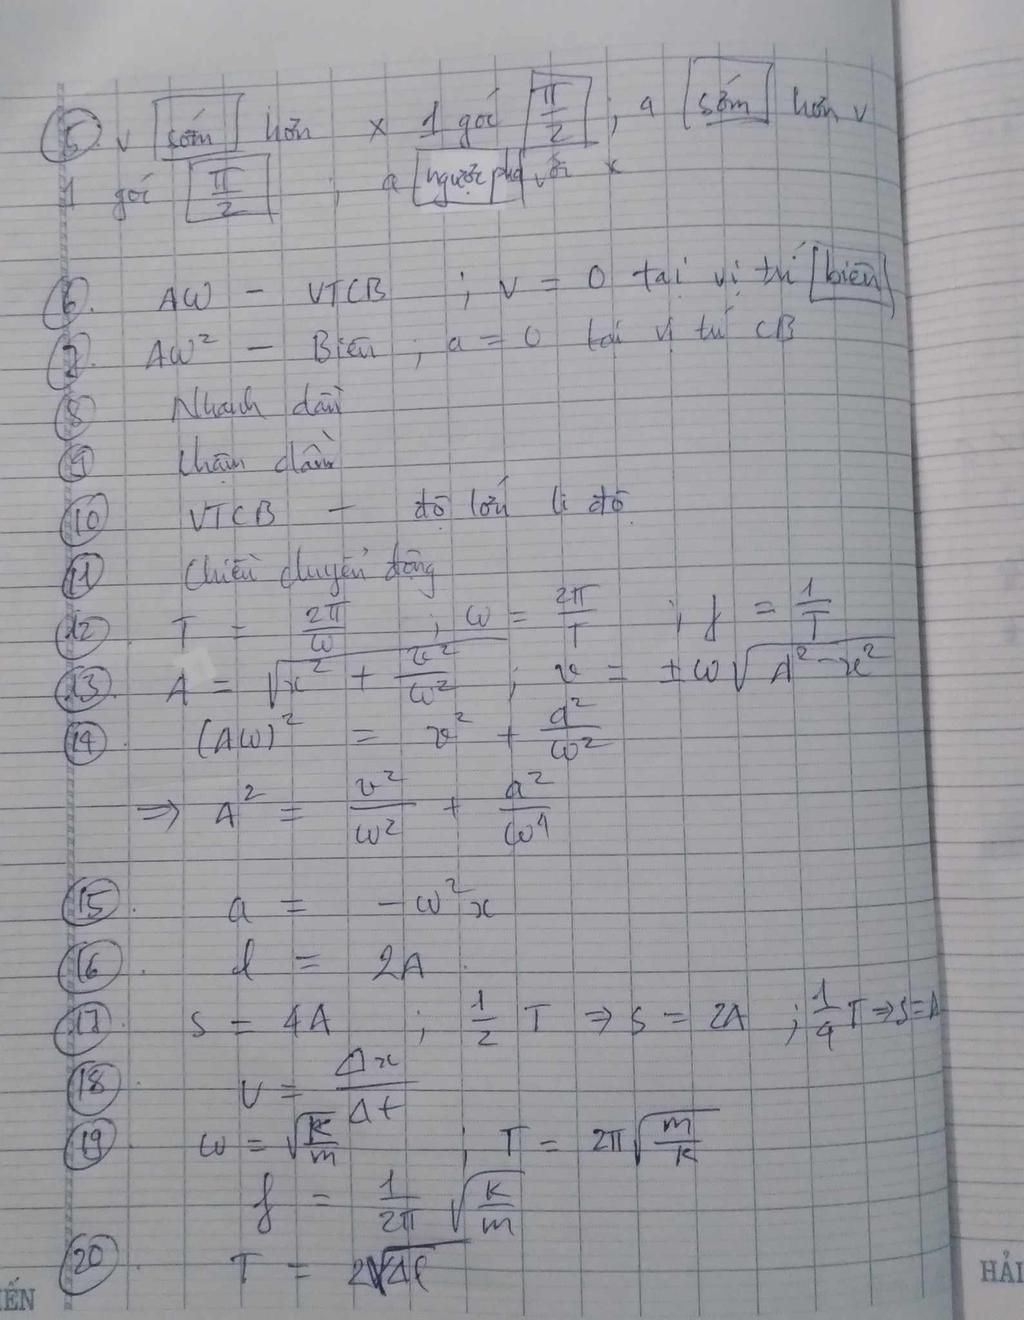 5. v sớm hơn x 1 góc π/2 ; a sớm hơn v
1 góc π/2 ; a ngược pha với x
6. Aω - VTCB ; v = 0 tại vị trí biên
7. Aω² - Biên ; a = 0 tại vị trí CB
8 Nhanh dần
9 chậm dần
10 VTCB - độ lớn li độ
11 Chiều chuyển động
12. T = 2π/ω ; ω = 2π/T ; f = 1/T
13. A = √(x² + v²/ω²) ; v = ±ω√(A² - x²)
14. (Aω)² = v² + a²/ω²
⇒ A² = v²/ω² + a²/ω⁴
15. a = -ω²x
16. l = 2A
17. S = 4A ; 1/2 T ⇒ S = 2A ; 1/4 T ⇒ S = A
18 v = Δx/Δt
19. ω = √(k/m) ; T = 2π√(m/k)
f = 1/2π √(k/m)
20 T = 2√Δl
ẾN
HẢI